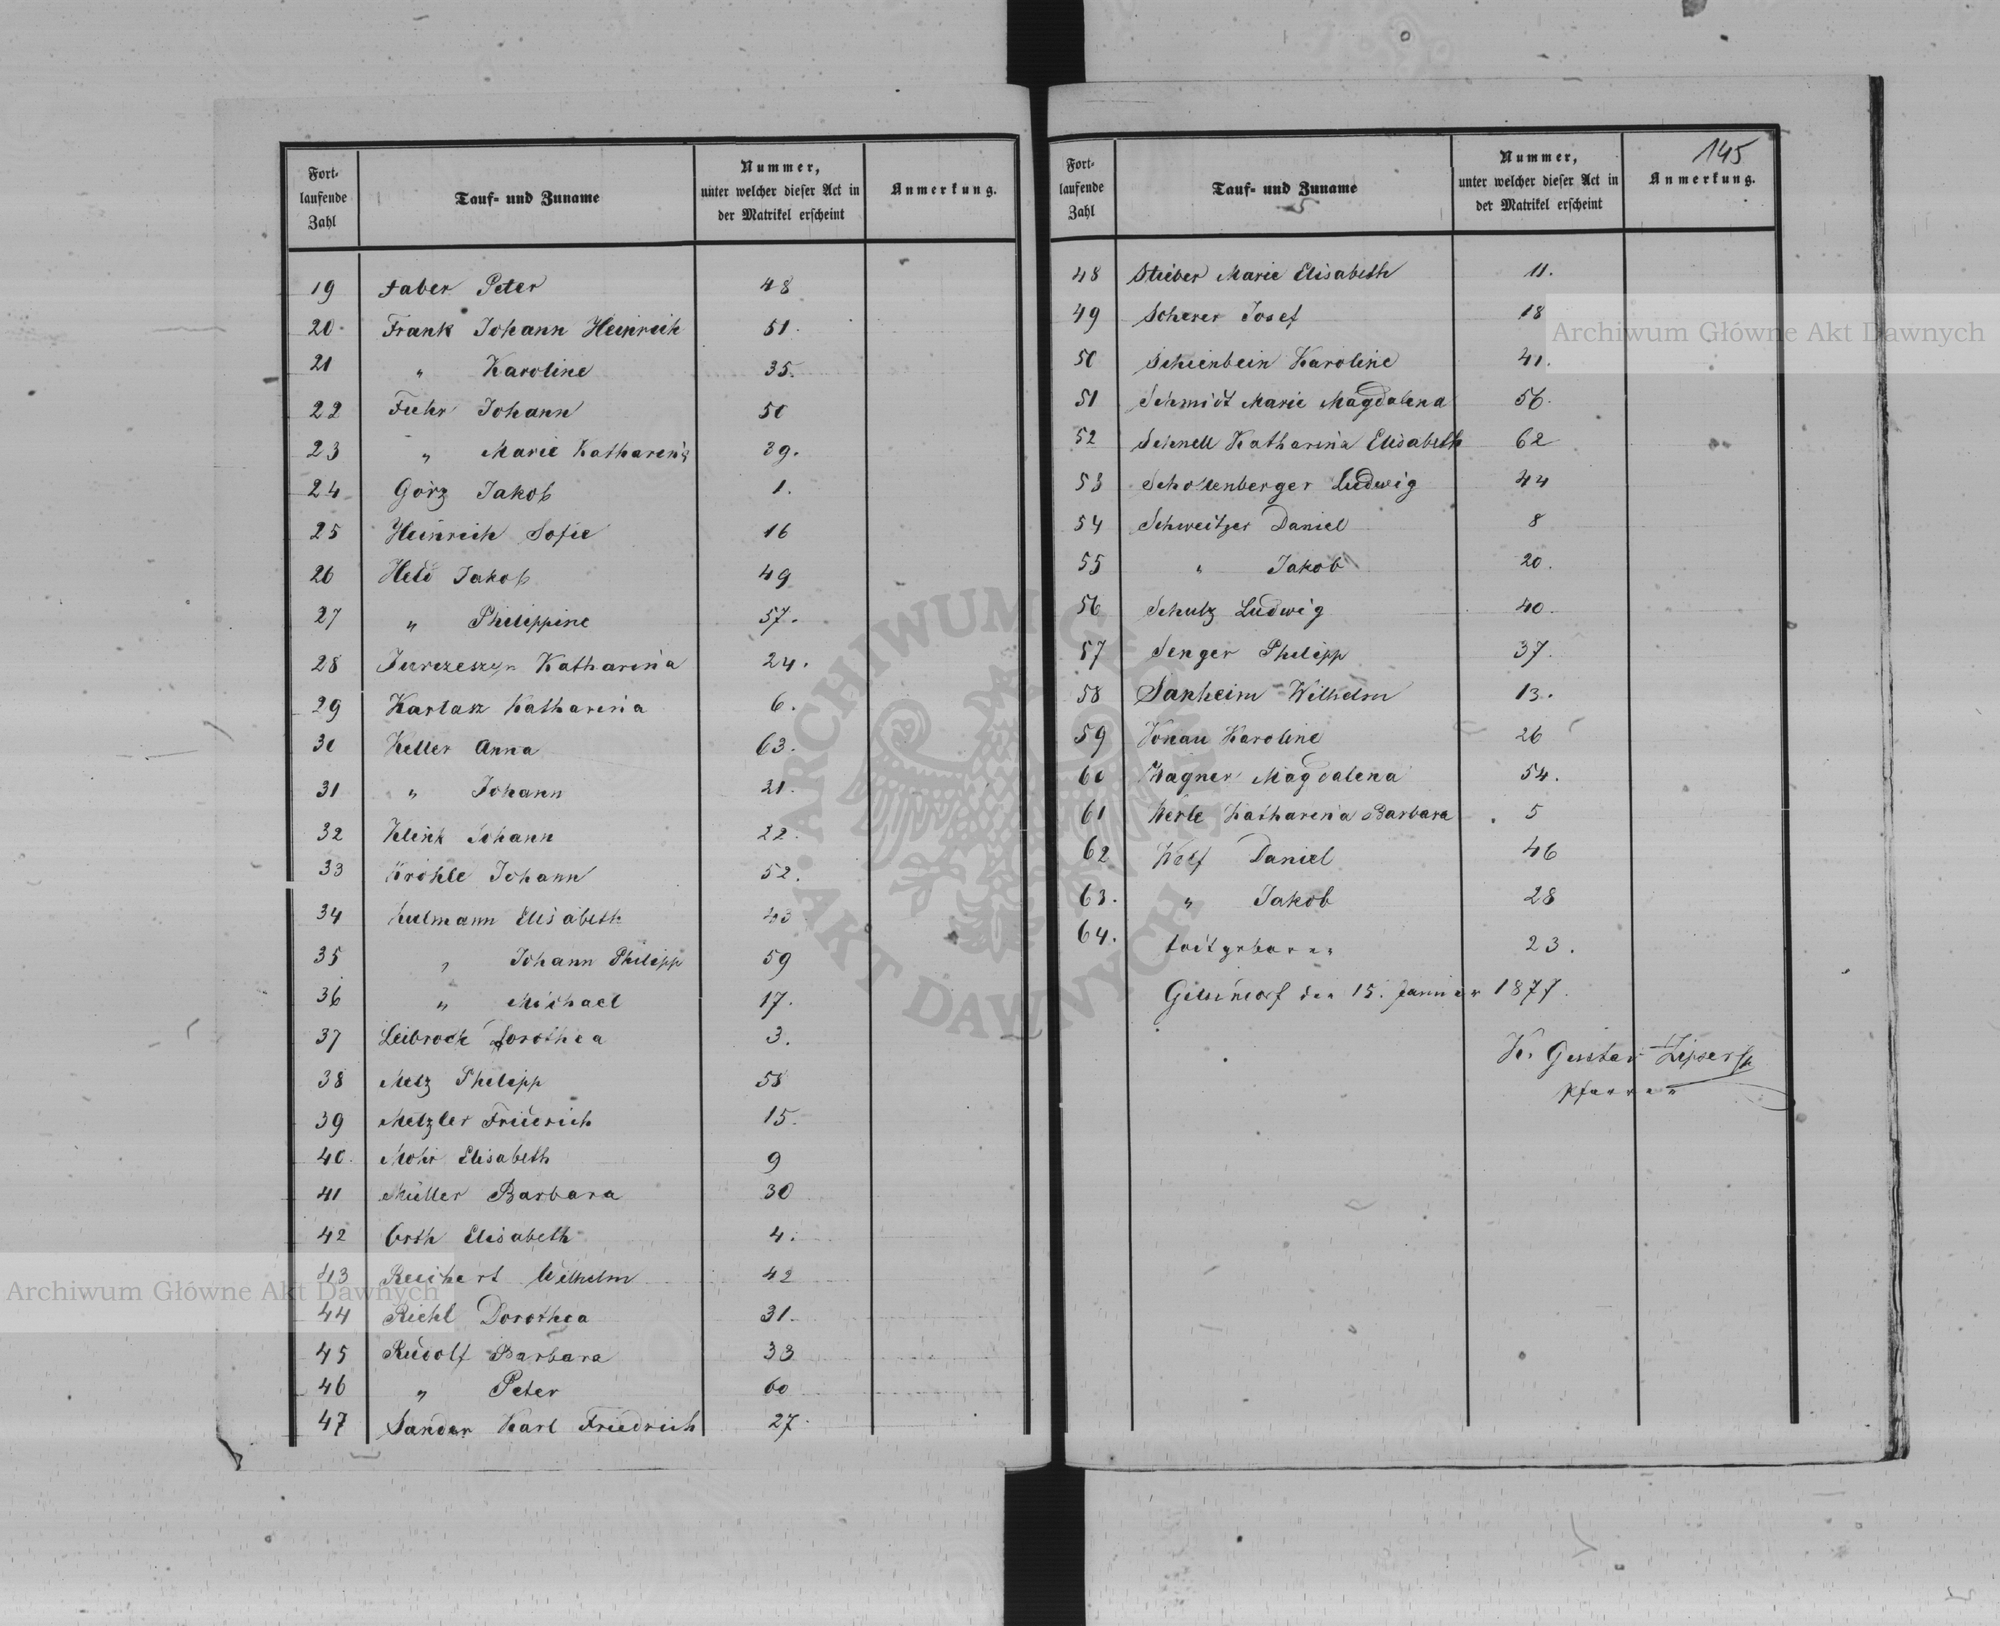 Fortlaufende Zahl | Tauf- und Zuname | Nummer, unter welcher dieser Act in der Matrikel erscheint | Anmerkung.
19 Faber Peter 48
20 Frank Johann Heinrich 51.
21 " Karoline 35.
22 Fuhr Johann 50
23 " Marie Katharina 39.
24 Görz Jakob 1.
25 Heinrich Sofie 16
26 Held Jakob 49
27 " Philippine 57.
28 Katharina 24.
29 Karlasz Katharina 6.
30 Keller Anna 63.
31 " Johann 21.
32 Klink Johann 22.
33 Kröhle Johann 52.
34 Kulmann Elisabeth
35 " Johann Philipp 59
36 " Michael 17.
37 Leibrock Dorothea 3.
38 Metz Philipp 58
39 Metzler Friedrich 15.
40. Mohr Elisabeth 9
41 Müller Barbara 30
42 Orth Elisabeth 4.
43 Reichert Wilhelm 42
44 Riehl Dorothea 31.
45 Rudolf Barbara 33
46 " Peter 60
47 Sander Karl Friedrich 27.
145
Fortlaufende Zahl | Tauf- und Zuname | Nummer, unter welcher dieser Act in der Matrikel erscheint | Anmerkung.
48 Stieber Marie Elisabeth 11.
49 Scherer Josef 18
50 Schienbein Karoline 41.
51 Schmidt Marie Magdalena 56.
52 Schnell Katharina Elisabeth 62
53 Schollenberger Ludwig 44
54 Schweitzer Daniel 8
55 " Jakob 20.
56 Schulz Ludwig 40
57 Senger Philipp 37.
58 Wilhelm 13.
59 Vonau Karoline 26
60 Wagner Magdalena 54.
61 Werle Katharina Barbara 5
62 Wolf Daniel 46
63. " Jakob 28
64. todtgeboren 23.
den 15. Januar 1877.
K. Gustav Lipser
Pfarrer
Archiwum Główne Akt Dawnych
Archiwum Główne Akt Dawnych
ARCHIWUM GŁÓWNE AKT DAWNYCH